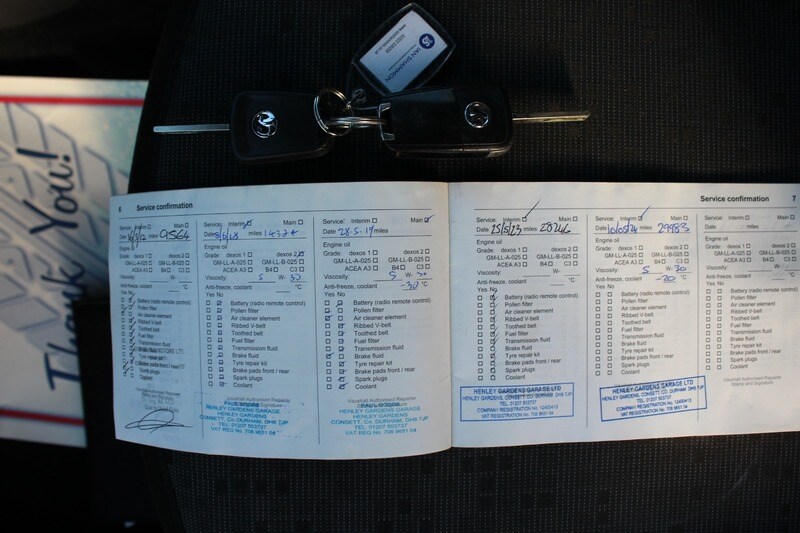 IAN SHANNON
Thank You!
6 Service confirmation
Service: Interim Main
Date miles 9564
Engine oil
Grade: dexos 1 dexos 2
GM-LL-A-025 GM-LL-B-025
ACEA A3 B4 C3
Viscosity: W-
Anti-freeze, coolant °C
Yes No
Battery (radio remote control)
Pollen filter
Air cleaner element
Ribbed V-belt
Toothed belt
Fuel filter
Transmission fluid
Brake fluid
Tyre repair kit
Brake pads front / rear
Spark plugs
Coolant
Service: Interim Main
Date miles
Engine oil
Grade: dexos 1 dexos 2
GM-LL-A-025 GM-LL-B-025
ACEA A3 B4 C3
Viscosity: 5 W- 30
Anti-freeze, coolant °C
Yes No
Battery (radio remote control)
Pollen filter
Air cleaner element
Ribbed V-belt
Toothed belt
Fuel filter
Transmission fluid
Brake fluid
Tyre repair kit
Brake pads front / rear
Spark plugs
Coolant
Vauxhall Authorised Repairer
HENLEY GARDENS GARAGE
HENLEY GARDENS,
CONSETT, Co. DURHAM. DH8 7JP
TEL. 01207 503737
VAT REG No. 708 9651 04
Service: Interim Main
Date 28.5.19 miles
Engine oil
Grade: dexos 1 dexos 2
GM-LL-A-025 GM-LL-B-025
ACEA A3 B4 C3
Viscosity: 5 W- 30
Anti-freeze, coolant -30 °C
Yes No
Battery (radio remote control)
Pollen filter
Air cleaner element
Ribbed V-belt
Toothed belt
Fuel filter
Transmission fluid
Brake fluid
Tyre repair kit
Brake pads front / rear
Spark plugs
Coolant
Vauxhall Authorised Repairer
HENLEY GARDENS GARAGE
HENLEY GARDENS,
CONSETT, Co. DURHAM. DH8 7JP
TEL. 01207 503737
VAT REG No. 708 9651 04
Service confirmation 7
Service: Interim Main
Date 25/5/23 miles 28246
Engine oil
Grade: dexos 1 dexos 2
GM-LL-A-025 GM-LL-B-025
ACEA A3 B4 C3
Viscosity: W-
Anti-freeze, coolant °C
Yes No
Battery (radio remote control)
Pollen filter
Air cleaner element
Ribbed V-belt
Toothed belt
Fuel filter
Transmission fluid
Brake fluid
Tyre repair kit
Brake pads front / rear
Spark plugs
Coolant
HENLEY GARDENS GARAGE LTD
HENLEY GARDENS, CONSETT, CO. DURHAM, DH8 7JP
TEL. 01207 503737
COMPANY REGISTRATION No. 12400413
VAT REGISTRATION No. 708 9651 04
Service: Interim Main
Date 10/05/24 miles 29983
Engine oil
Grade: dexos 1 dexos 2
GM-LL-A-025 GM-LL-B-025
ACEA A3 B4 C3
Viscosity: 5 W- 30
Anti-freeze, coolant -20 °C
Yes No
Battery (radio remote control)
Pollen filter
Air cleaner element
Ribbed V-belt
Toothed belt
Fuel filter
Transmission fluid
Brake fluid
Tyre repair kit
Brake pads front / rear
Spark plugs
Coolant
HENLEY GARDENS GARAGE LTD
HENLEY GARDENS, CONSETT, CO. DURHAM, DH8 7JP
TEL. 01207 503737
COMPANY REGISTRATION No. 12400413
VAT REGISTRATION No. 708 9651 04
Service:
Date
Engine oil
Grade:
GM-LL-A
ACE
Viscosity:
Anti-freeze,
Yes No
Battery
Pollen
Air
Vauxhall Authorised